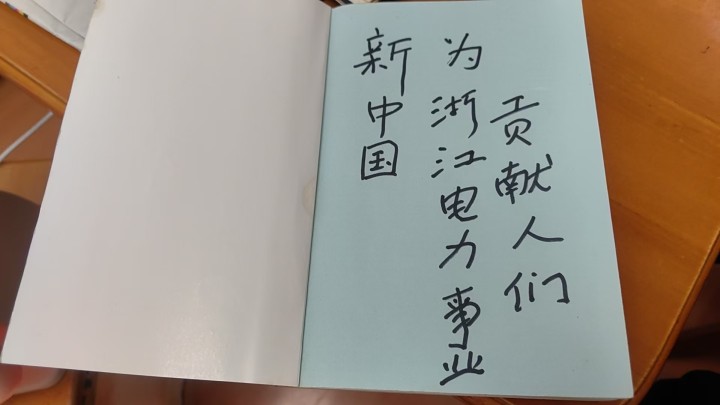 新中国
为浙江电力事业
贡献人们